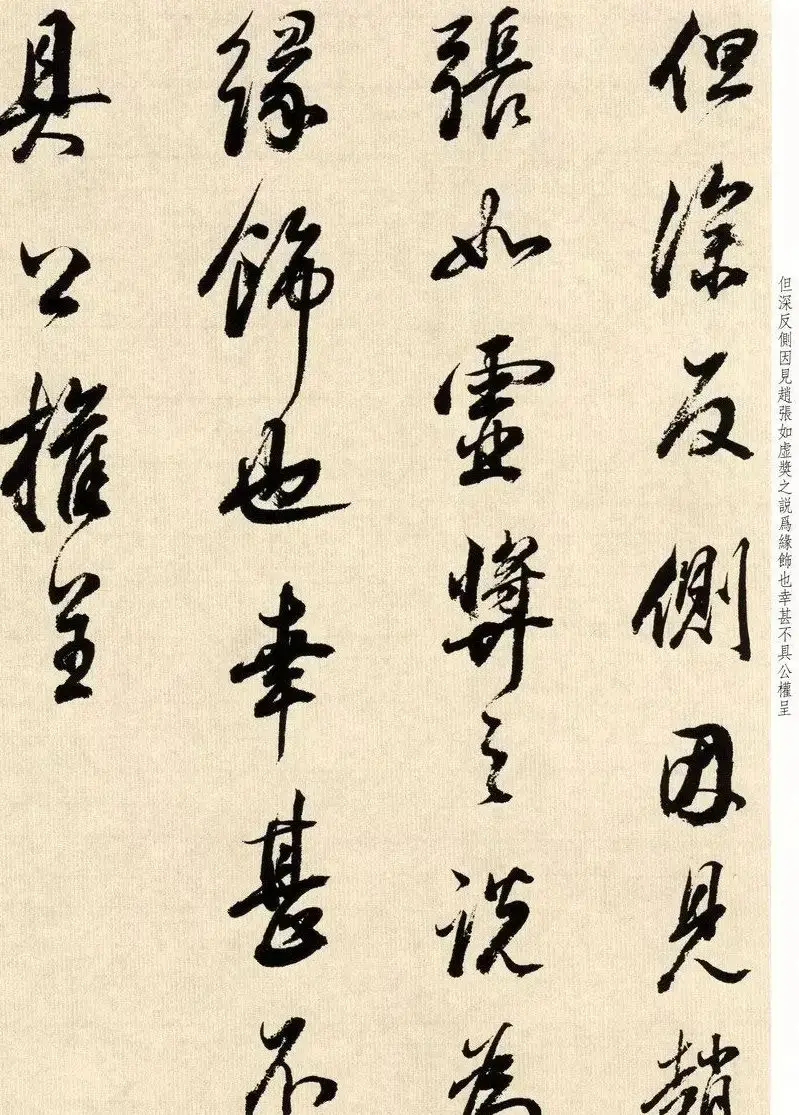 但深反側因見趙
張如虛獎之說為
緣飾也幸甚不
具公權呈
但深反側因見趙張如虛獎之説爲緣飾也幸甚不具公權呈